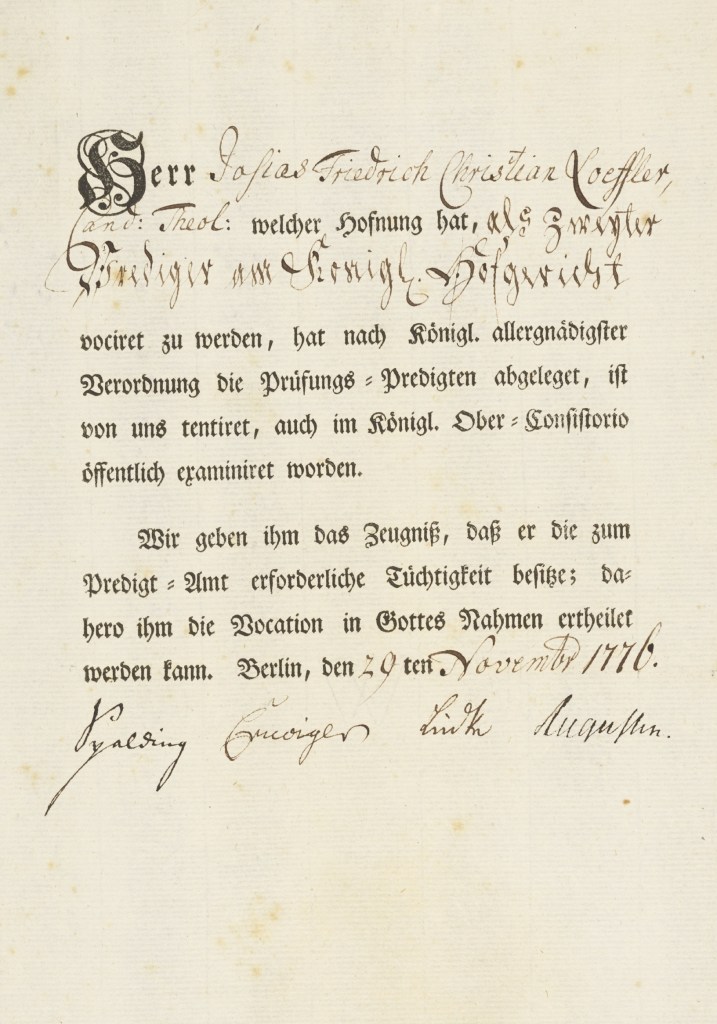 Herr Josias Friedrich Christian Loeffler,
Cand: Theol: welcher Hofnung hat, als Zweyter
Prediger am Königl. Hofgericht
vociret zu werden, hat nach Königl. allergnädigster
Verordnung die Prüfungs-Predigten abgeleget, ist
von uns tentiret, auch im Königl. Ober-Consistorio
öffentlich examiniret worden.
Wir geben ihm das Zeugniß, daß er die zum
Predigt-Amt erforderliche Tüchtigkeit besitze; da-
hero ihm die Vocation in Gottes Nahmen ertheilet
werden kann. Berlin, den 29 ten Novembr 1776.
Spalding Cruciger Lüdke Augustin.